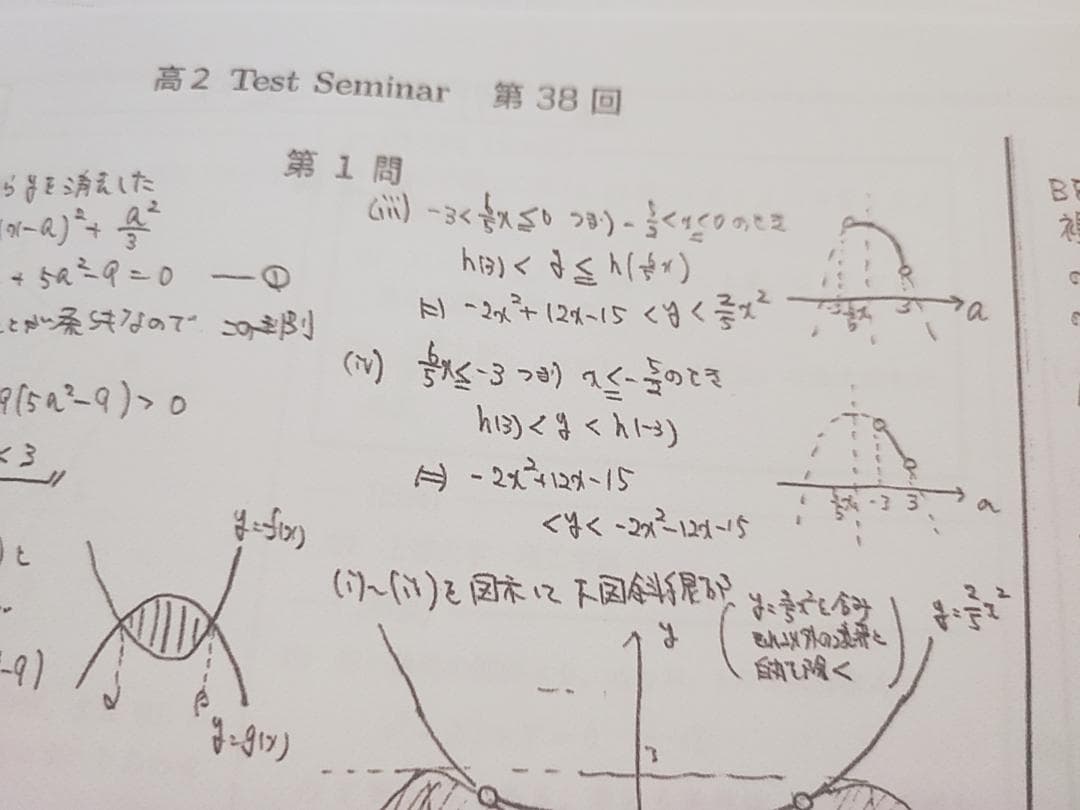 高2 Test Seminar 第 38 回
第 1 問
らyを消去した
(x-a)²+ a²/3
+ 5a²-9=0 ―①
9(5a²-9)>0
<3
y=f(x)
α β
y=g(x)
(iii) -3<6/5x≦0 つまり -5/2<x≦0 のとき
h(3)< y ≦ h(6/5x)
⇔ -2x²+12x-15 <y< 2/5x²
(iv) 6/5x≦-3 つまり x≦-5/2のとき
h(3)< y < h(-3)
⇔ -2x²+12x-15
<y< -2x²-12x-15
-3 6/5x 3 a
6/5x -3 3 a
(i)~(iv)を図示して下図斜線部
y=2/5x²を含み
それ以外の境界と
白丸を除く
y=2/5x²
y
3